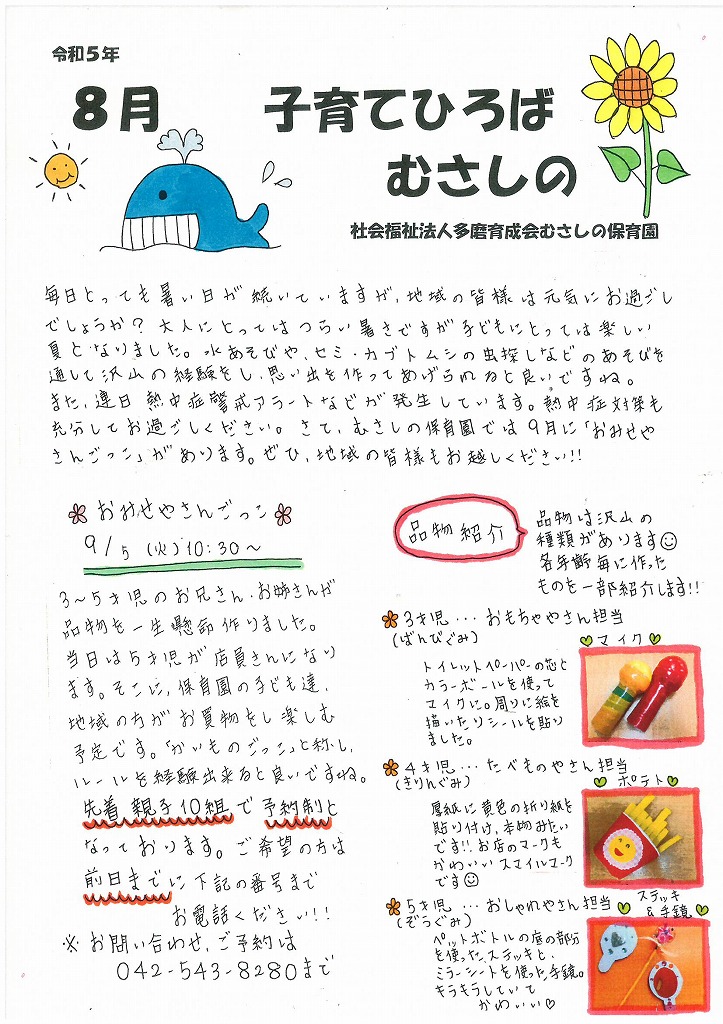 令和5年
8月
子育てひろば
むさしの
社会福祉法人多磨育成会むさしの保育園
毎日とっても暑い日が続いていますが、地域の皆様は元気にお過ごし
でしょうか?大人にとってはつらい暑さですが子どもにとっては楽しい
夏となりました。水あそびや、セミ・カブトムシの虫探しなどのあそびを
通して沢山の経験をし、思い出を作ってあげられると良いですね。
また、連日熱中症警戒アラートなどが発生しています。熱中症対策も
充分してお過ごしください。さて、むさしの保育園では9月に「おみせや
さんごっこ」があります。ぜひ、地域の皆様もお越しください!!
おみせやさんごっこ
9/5(火)10:30~
3~5才児のお兄さん・お姉さんが
品物を一生懸命作りました。
当日は5才児が店員さんになり
ます。そこに、保育園の子ども達、
地域の方がお買物をし楽しむ
予定です。「かいものごっこ」と称し、
ルールを経験出来ると良いですね。
先着親子10組で予約制と
なっております。ご希望の方は
前日までに下記の番号まで
お電話ください!!
※お問い合わせ、ご予約は
042-543-8280まで
品物紹介
品物は沢山の
種類があります☺
各年齢毎に作った
ものを一部紹介します!!
3才児…おもちゃやさん担当
(ばんびぐみ)
マイク
トイレットペーパーの芯と
カラーボールを使って
マイクに。周りに絵を
描いたりシールを貼り
ました。
4才児…たべものやさん担当
(きりんぐみ)
ポテト
厚紙に黄色の折り紙を
貼り付け、本物みたい
です!!お店のマークも
かわいいスマイルマーク
です☺
5才児…おしゃれやさん担当
(ぞうぐみ)
ステッキ
&手鏡
ペットボトルの底の部分
を使ったステッキと、
ミラーシートを使った手鏡。
キラキラしていて
かわいい♡